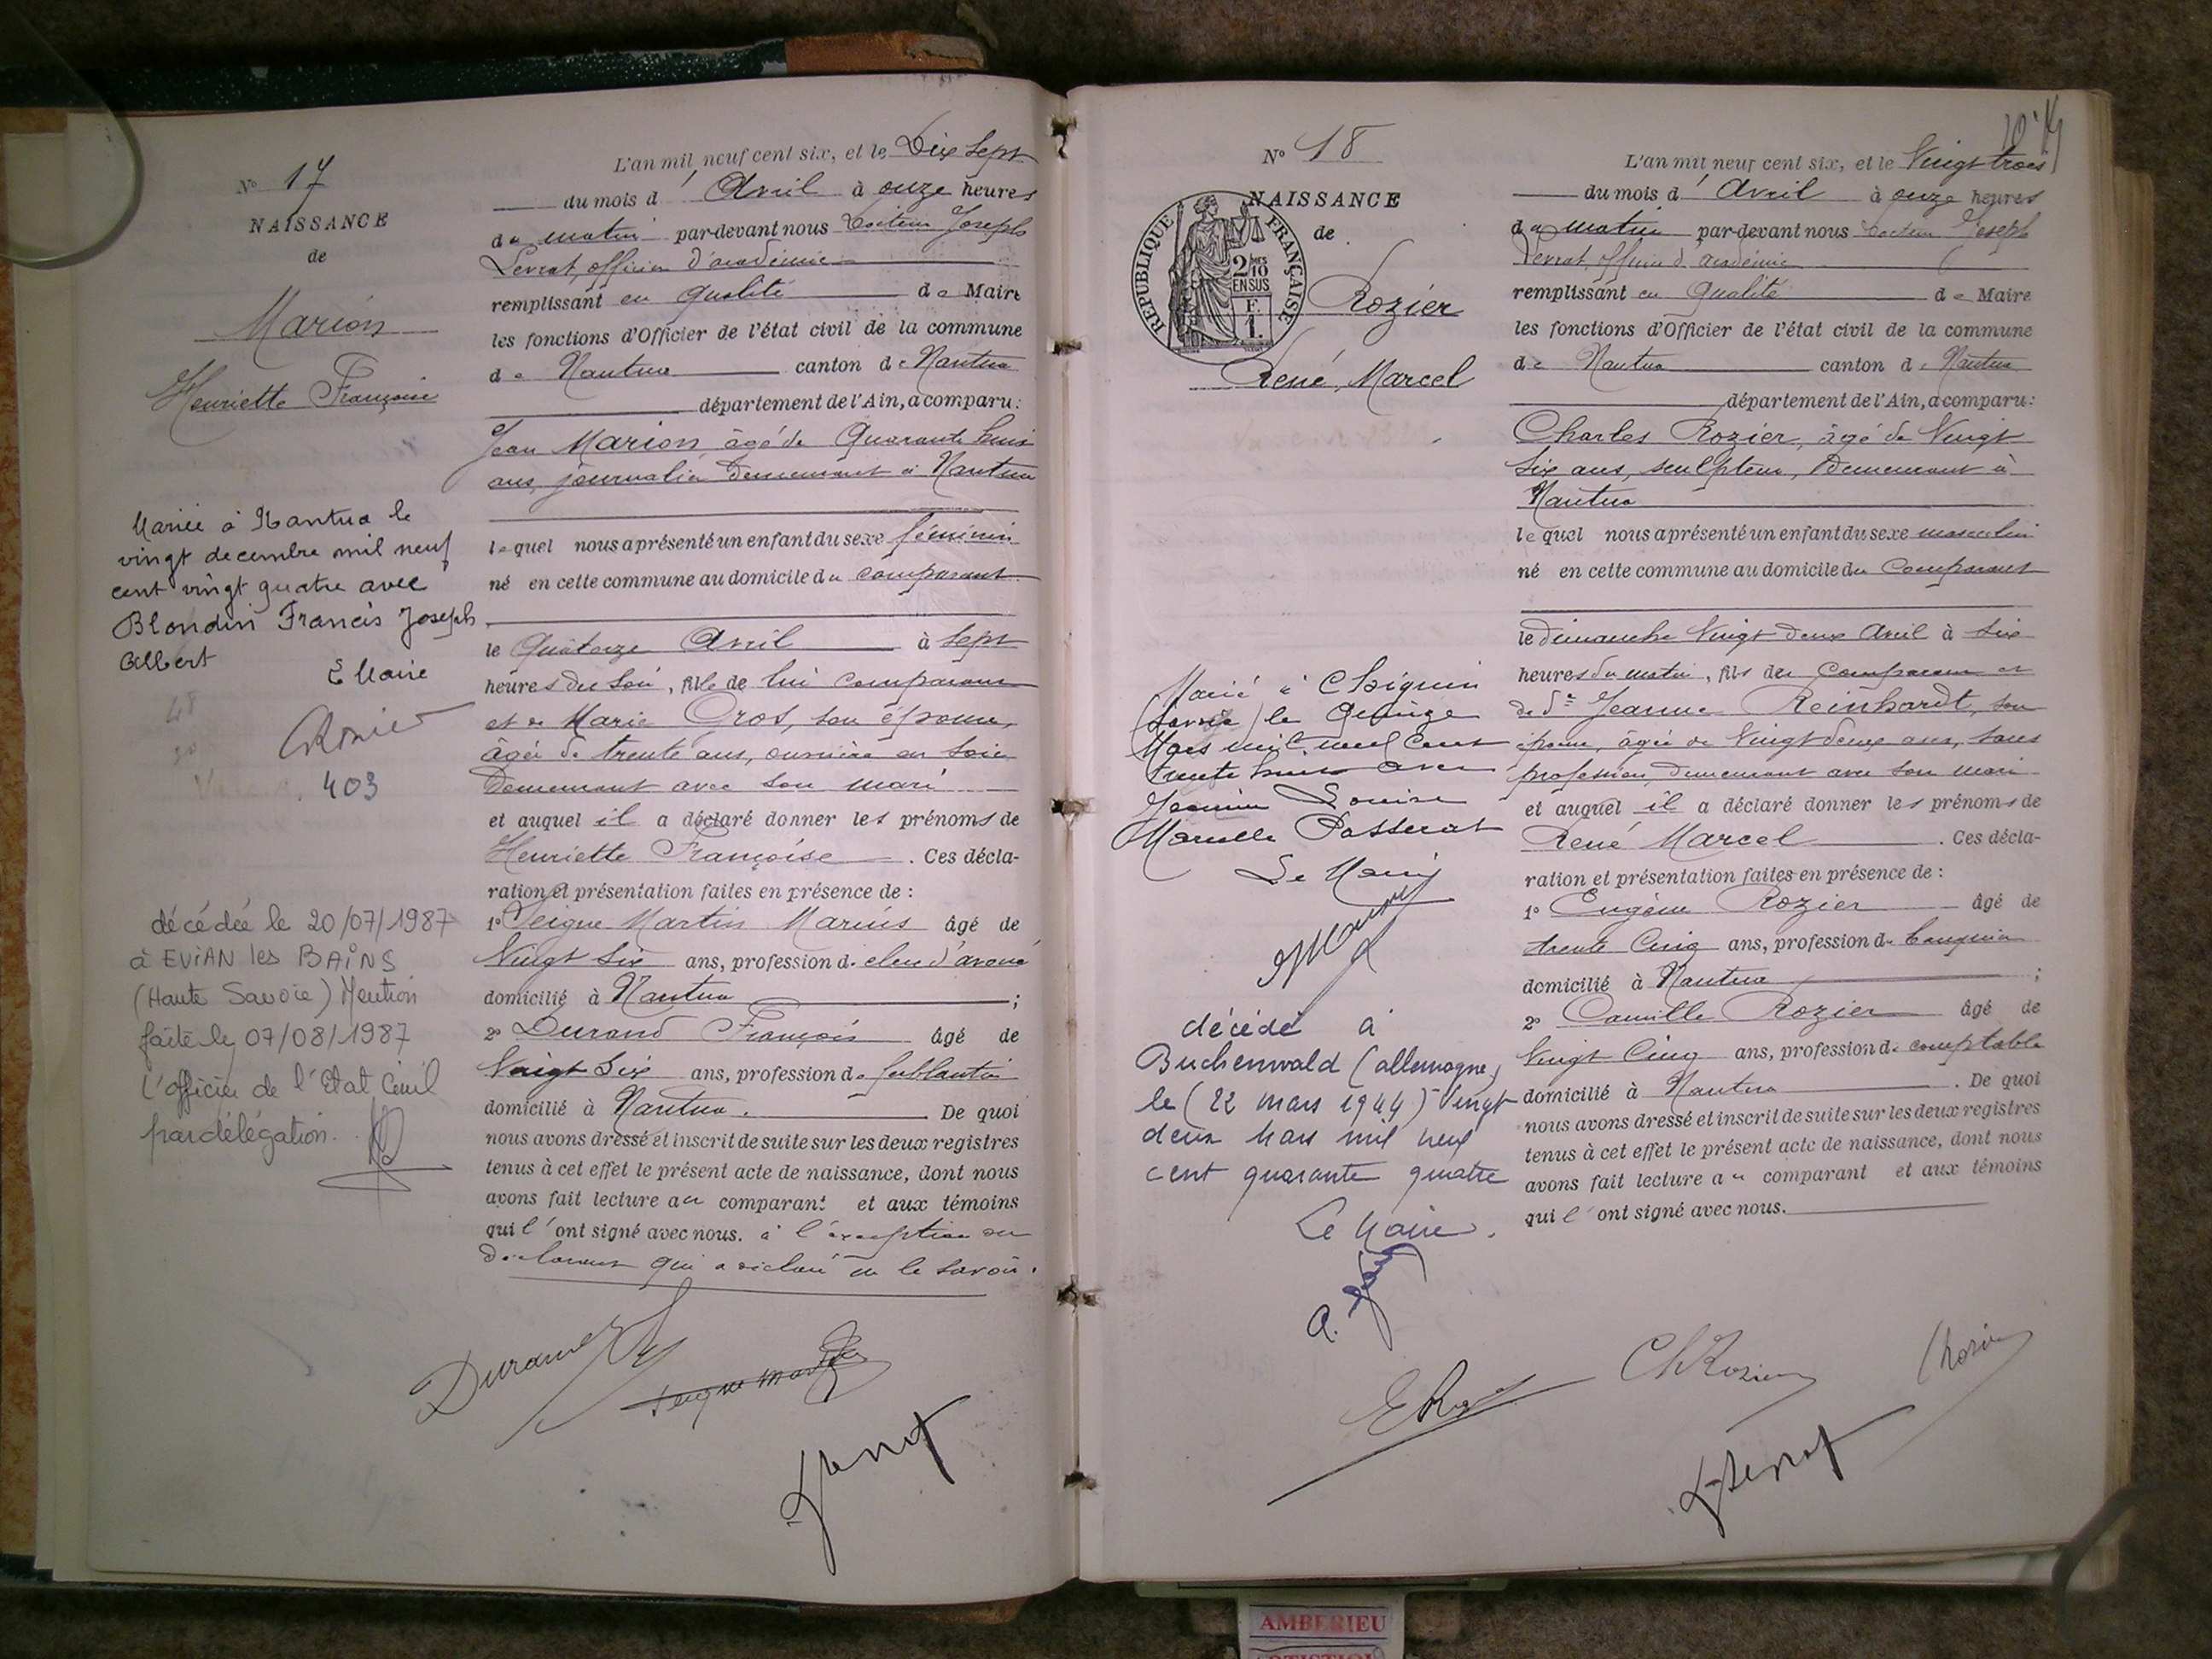 N° 17
NAISSANCE
de
Marion
Henriette Françoise
Mariée à Nantua le
vingt decembre mil neuf
cent vingt quatre avec
Blondin Francis Joseph
Albert
Maire
403
décédée le 20/07/1987
à EViAN les BAiNS
(Haute Savoie) Mention
faite le 07/08/1987
l'officier de l'Etat Civil
par délégation.
L'an mil neuf cent six, et le Dix Sept
du mois d' Avril à onze heures
du matin par-devant nous Docteur Joseph
Levrat, officier d'académie
remplissant en qualité de Maire
les fonctions d'Officier de l'état civil de la commune
de Nantua canton de Nantua
département de l'Ain, a comparu :
Jean Marion âgé de Quarante huit
ans, journalier demeurant à Nantua
lequel nous a présenté un enfant du sexe féminin
né en cette commune au domicile du comparant
le Quatorze Avril à Sept
heures du soir, fille de lui comparant
et de Marie Gros, son épouse,
âgée de trente ans, ouvrière en soie
demeurant avec son mari
et auquel il a déclaré donner les prénoms de
Henriette Françoise . Ces décla-
ration et présentation faites en présence de :
1° Seigne Martin Marius âgé de
Vingt Six ans, profession de clerc d'avoué
domicilié à Nantua ;
2° Durand François âgé de
Vingt Six ans, profession de ferblantier
domicilié à Nantua. De quoi
nous avons dressé et inscrit de suite sur les deux registres
tenus à cet effet le présent acte de naissance, dont nous
avons fait lecture au comparant et aux témoins
qui l'ont signé avec nous. à l'exception du
declarant qui a déclaré ne le savoir.
Durand
N° 18
NAISSANCE
de
REPUBLIQUE FRANÇAISE
2/10
EN SUS
Rozier
René, Marcel
Marié à Chignin
(Savoie) le Quinze
Mars mil neuf cent
trente huit avec
Jeannine Louise
Marcelle Passerat
Le Maire
décédé à
Buchenwald (allemagne)
le (22 mars 1944) vingt
deux Mars mil neuf
cent quarante quatre
Le Maire.
L'an mil neuf cent six, et le Vingt trois
du mois d' Avril à onze heures
du matin par-devant nous Docteur Joseph
Levrat, officier d'académie
remplissant en qualité de Maire
les fonctions d'Officier de l'état civil de la commune
de Nantua canton de Nantua
département de l'Ain, a comparu :
Charles Rozier, âgé de Vingt
Six ans, sculpteur, demeurant à
Nantua
lequel nous a présenté un enfant du sexe masculin
né en cette commune au domicile du Comparant
le dimanche Vingt deux Avril à Six
heures du matin, fils du Comparant et
de de Jeanne Reinhardt, son
épouse, âgée de Vingt deux ans, sans
profession, demeurant avec son mari
et auquel il a déclaré donner les prénoms de
René Marcel . Ces décla-
ration et présentation faites en présence de :
1° Eugène Rozier âgé de
trente Cinq ans, profession de banquier
domicilié à Nantua ;
2° Camille Rozier âgé de
Vingt Cinq ans, profession de comptable
domicilié à Nantua . De quoi
nous avons dressé et inscrit de suite sur les deux registres
tenus à cet effet le présent acte de naissance, dont nous
avons fait lecture au comparant et aux témoins
qui l'ont signé avec nous.
Ch Rozier
AMBERIEU